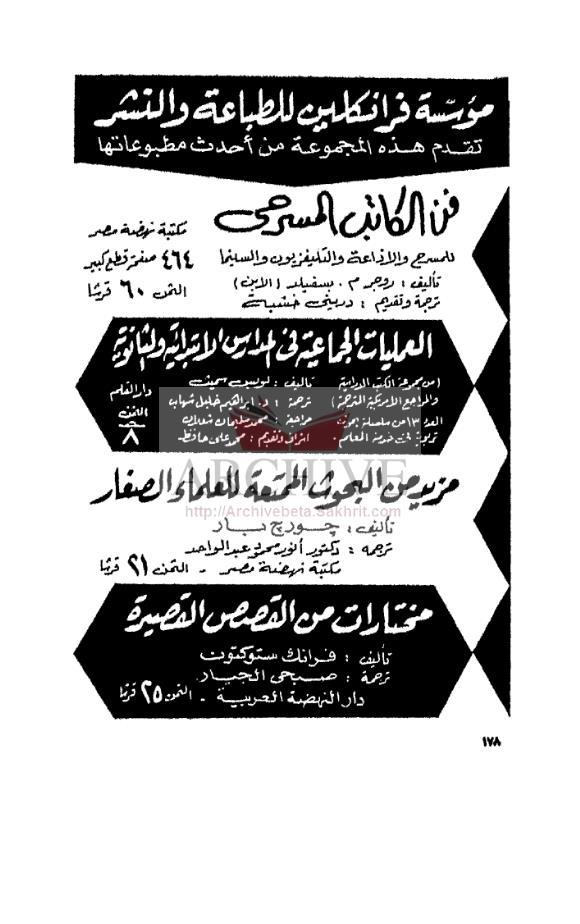 مؤسسة فرانكلين للطباعة والنشر
تقدم هذه المجموعة من أحدث مطبوعاتها
فن الكاتب المسرحى
للمسرح والإذاعة والتليفزيون والسينما
تأليف : روجر م . بسفيلد (الابن)
ترجمة وتقديم : درينى خشبة
مكتبة نهضة مصر
٤٦٤ صفحة قطع كبير
الثمن ٦٠ قرشا
العمليات الجماعية فى المدارس الابتدائية والثانوية
(من مجموعة الكتب الدراسية
والمراجع الأمريكية المترجمة)
العدد ١٣ من سلسلة بحوث
تربوية فى خدمة المعلم .
تأليف : لويس سميث
ترجمة : د. إبراهيم خليل شهاب
مراجعة : محمد سليمان شعلان
اشراف وتقديم : محمد على حافظ
دار القلم
الثمن
٨
ARCHIVE
http://Archivebeta.Sakhrit.com
مزيد من البحوث الممتعة للعلماء الصغار
تأليف : چورچ بار
ترجمه : دكتور أنور محمود عبد الواحد
مكتبة نهضة مصر - الثمن ٢١ قرشا
مختارات من القصص القصيرة
تأليف : فرانك ستوكتون
ترجمة : صبحى الجيار
دار النهضة العربية - الثمن ٢٥ قرشا
١٧٨